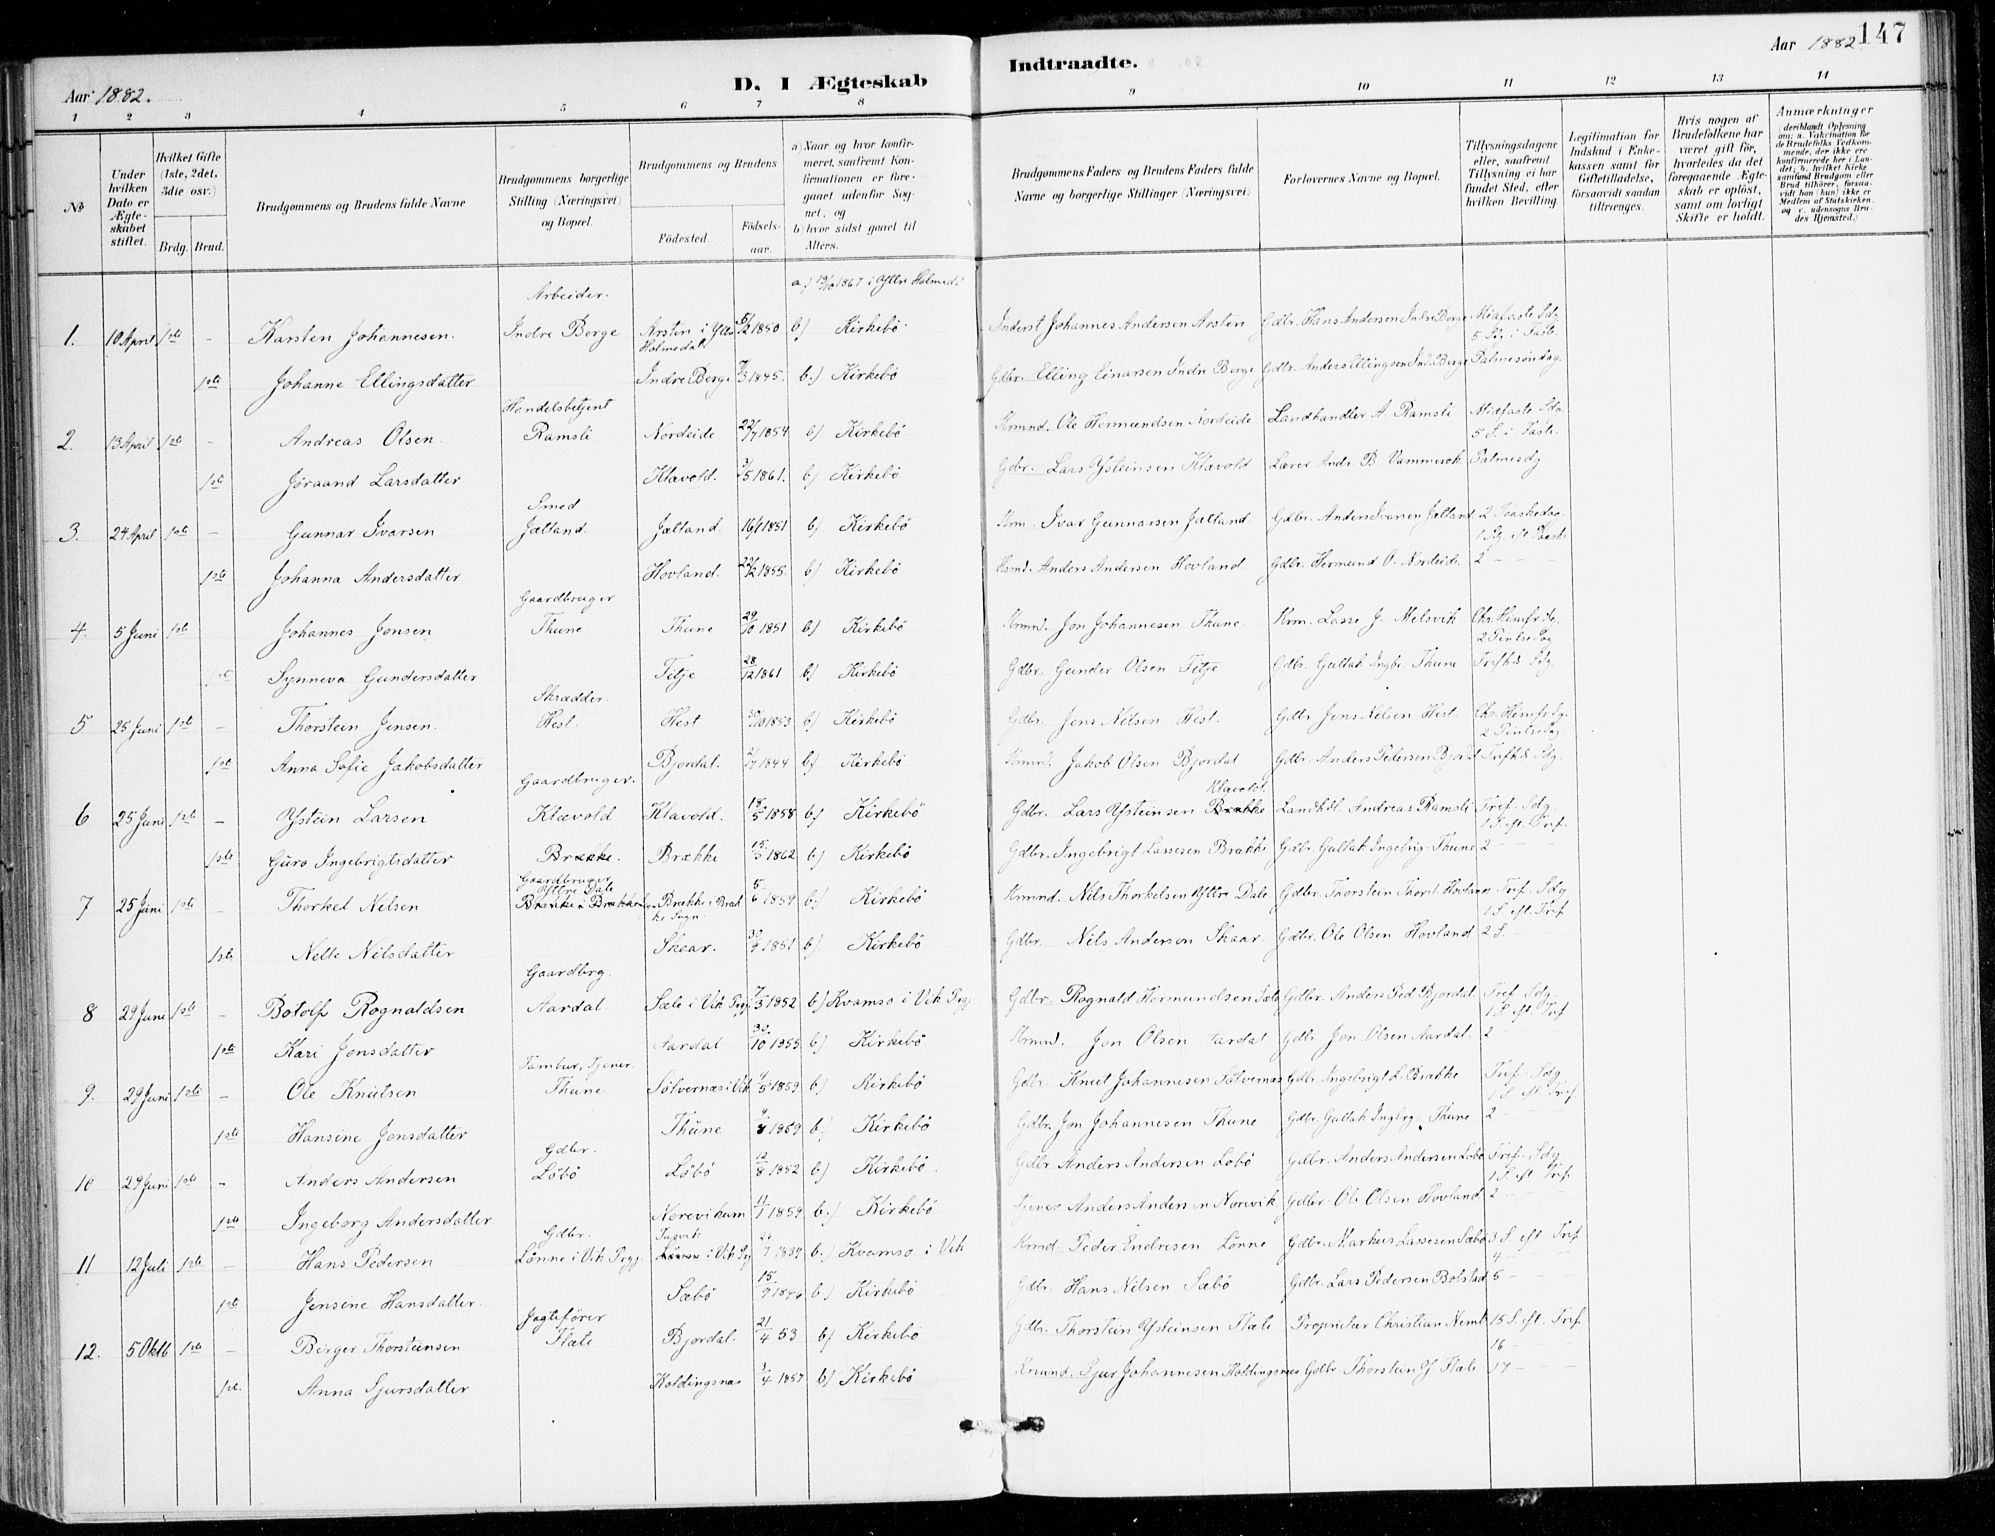 Aar 1882.
D. I Ægteskab
Indtraadte.
Aar 1882
147
1 2 3 4 5 6 7 8 9 10 11 12 13 14
No
Under hvilken Dato er Ægteskabet stiftet.
Hvilket Gifte (1ste, 2det, 3die osv.)
Brdg. Brud.
Brudgommens og Brudens fulde Navne
Brudgommens borgerlige Stilling (Næringsvei) og Bopæl.
Brudgommens og Brudens
Fødested.
Fødselsaar.
a) Naar og hvor konfirmeret, saafremt Konfirmationen er foregaaet udenfor Sognet, og
b) hvor sidst gaaet til Alters.
Brudgommens Faders og Brudens Faders fulde Navne og borgerlige Stillinger (Næringsvei)
Forlovernes Navne og Bopæl.
Tillysningsdagene eller, saafremt Tillysning ei har fundet Sted, efter hvilken Bevilling.
Legitimation for Indskud i Enkekassen samt for Giftetilladelse, forsaavidt saadan tiltrænges.
Hvis nogen af Brudefolkene har været gift før, hvorledes da det foregaaende Ægteskab er opløst, samt om lovligt Skifte er holdt.
Anmærkninger
(deriblandt Oplysning om: a. Vakcination for de Brudefolks Vedkommende, der ikke ere konfirmerede her i Landet; b. hvilket Kirkesamfund Brudgom eller Brud tilhører, forsaavidt han (hun) ikke er Medlem af Statskirken, og c. udensogns Brudes Hjemsted.)
Arbeider. a) 1867 i Yttre Holmedal
1. 10 April 1ste - Karsten Johannesen. Indre Berge Arsten i Ytre Holmedal 5/2 1850 b) Kirkebö Inderst Johannes Andersen Arsten Gdbr. Hans Andersen Indre Berge Midfaste Sdg. 5 S. i Faste
1ste Johanne Ellingsdatter Indre Berge 7/3 1845. b.) Kirkebö Gdbr. Elling Einarsen Indre Berge Gdbr. Anders Ellingsen Ind. Berge Palmesöndag.
Handelsbetjent
2. 13 April 1ste - Andreas Olsen. Ramsli Nordeide 22/7 1854 b) Kirkebö Krmnd. Ole Hermundsen Nordeide Landhandler A. Ramsli Midfaste Sdg. 5 S. i Faste.
1ste Jöraand Larsdatter Klævold. 3/5 1861. b) Kirkebö Gdbr. Lars Ysteinsen Klævold Lærer Andr. B. Vammerok Palmesdg
Smed
3. 24 April 1ste - Gunnar Ivarsen Jælland. Jælland. 16/1 1851 b) Kirkebö Krm. Ivar Gunnarsen Jælland Gdbr. Anders Ivarsen Jælland 2 Paaskedag. 1 Sg. eft Paaske
1ste Johanna Andersdatter Hovland. 22/2 1855. b) Kirkebö Hsmd. Anders Andersen Hovland Gdbr. Hermund O. Nordeide 2 -
Gaardbruger
4. 5 Juni 1ste Johannes Jonsen Thune Thune 29/10 1851 b) Kirkebö Krmnd. Jon Johannesen Thune Krm. Lasse J. Melsvik Chr. Himfr. dg. 2 Pintse Dag
1ste Synneva Gundersdatter Titje 28/12 1861 b) Kirkebö Gdbr. Gunder Olsen Titje Gdbr. Gullak Ingbr. Thune Trefh. Sdg.
Skrædder.
5 25 Juni 1ste - Thorstein Jensen. Hest. Hest /10 1853 b) Kirkebö Gdbr. Jens Nilsen Hest. Gdbr. Jens Nilsen Hest. Chr. Himfr. dg. 2 Pintsedag.
1ste Anna Sofie Jakobsdatter Bjordal. 2/7 1844 b) Kirkebö Krmnd. Jakob Olsen Bjordal Gdbr. Anders Pedersen Bjordal Trefh. Sdg.
Gaardbruger. Klævold.
6 25 Juni 1ste - Ystein Larsen Klævold Klævold. 18/5 1858 b) Kirkebö Gdbr. Lars Ysteinsen Brække Landhdl. Andreas Ramsli Tref. Sdg. 1 S. eft. Tref.
1ste Guro Ingebrigtsdatter Brække. Brække 15/3 1862 b) Kirkebö Gdbr. Ingebrigt Lassesen Brække Gdbr. Gullak Ingebrig. Thune 2 -
Gaardbruger Yttre Dale
7 25 Juni 1ste - Thorkel Nilsen Brække i Brække Brække i Brække Sogn. 5/6 1859 b.) Kirkebö Krmnd. Nils Thorkelsen Yttre Dale Gdbr. Thorstein Thorst. Hovland Tref. Sdg 1 S. eft. Tref
1ste Nelle Nilsdatter Skaar. 30/9 1851 b) Kirkebö Gdbr. Nils Andersen Skaar. Gdbr. Ole Olsen Hovland 2 S. -
Gaardbrg.
8 29 Juni 1ste - Botolf Rognaldsen Aardal Sæle i Vik Prgj. 7/5 1852 b) Kvamsö i Vik Prgj. Gdbr. Rognald Hermundsen Sæle Gdbr. Anders Ped Bjordal Tref. Sdg. 1 S. eft. Tref
1ste Kari Jonsdatter Aardal 30/10 1853 b) Kirkebö Krmnd. Jon Olsen Aardal. Gdbr. Jon Olsen Aardal. 2 -
Tambur, Tjener.
9. 29 Juni 1ste - Ole Knutsen Thune Sölvernæs i Vik /5 1859 b) Kirkebö Gdbr. Knut Johannesen Sölvernæs Gdbr. Ingebrigt L. Brække Tref. Sdg 1 S. eft Tref
1ste Hansine Jonsdatter Thune 1859 b) Kirkebö Gdbr. Jon Johannesen Thune Gdbr. Gullak Ingbrg. Thune 2 -
Gdbr.
10 29 Juni 1ste - Anders Andersen Löbö Löbö 12/8 1852 b) Kirkebö. Gdbr. Anders Andersen Lobö Gdbr. Anders Andersen Lobö Tref. Sdg 1 S. eft. Tref
1ste Ingeborg Andersdatter Norevikum 11/7 1859 b.) Kirkebö Tjener Anders Andersen Norevik Gdbr. Ole Olsen Hovland 2 -
Gdbr.
11 12 Juli 1ste - Hans Pedersen Lönne i Vik Prgj. i Vik b.) Kvamsö i Vik Krmd. Peder Endresen Lönne Gdbr. Markus Lassesen Sæbö 3 S eft Tref 4 -
1ste Jensine Hansdatter. Sæbö 15/9 b.) Kirkebö Gdbr. Hans Nilsen Sæbö Gdbr. Lars Pedersen Bolstad 5 -
Jagtefører
12. 5 Oktb 1ste - Birger Thorsteinsen Flæte Bjordal. 21/4 53 b) Kirkebö Gdbr. Thorstein Ysteinsen Flæte Proprietær Christian Nemt 15 S. eft. Tref. 16 -
1ste. Anna Sjursdatter Holdingsnæs 3/4 1857 b) Kirkebö Krmnd. Sjur Johannesen Holdingsnæs Gdbr. Thorstein Y Flæte 17 -